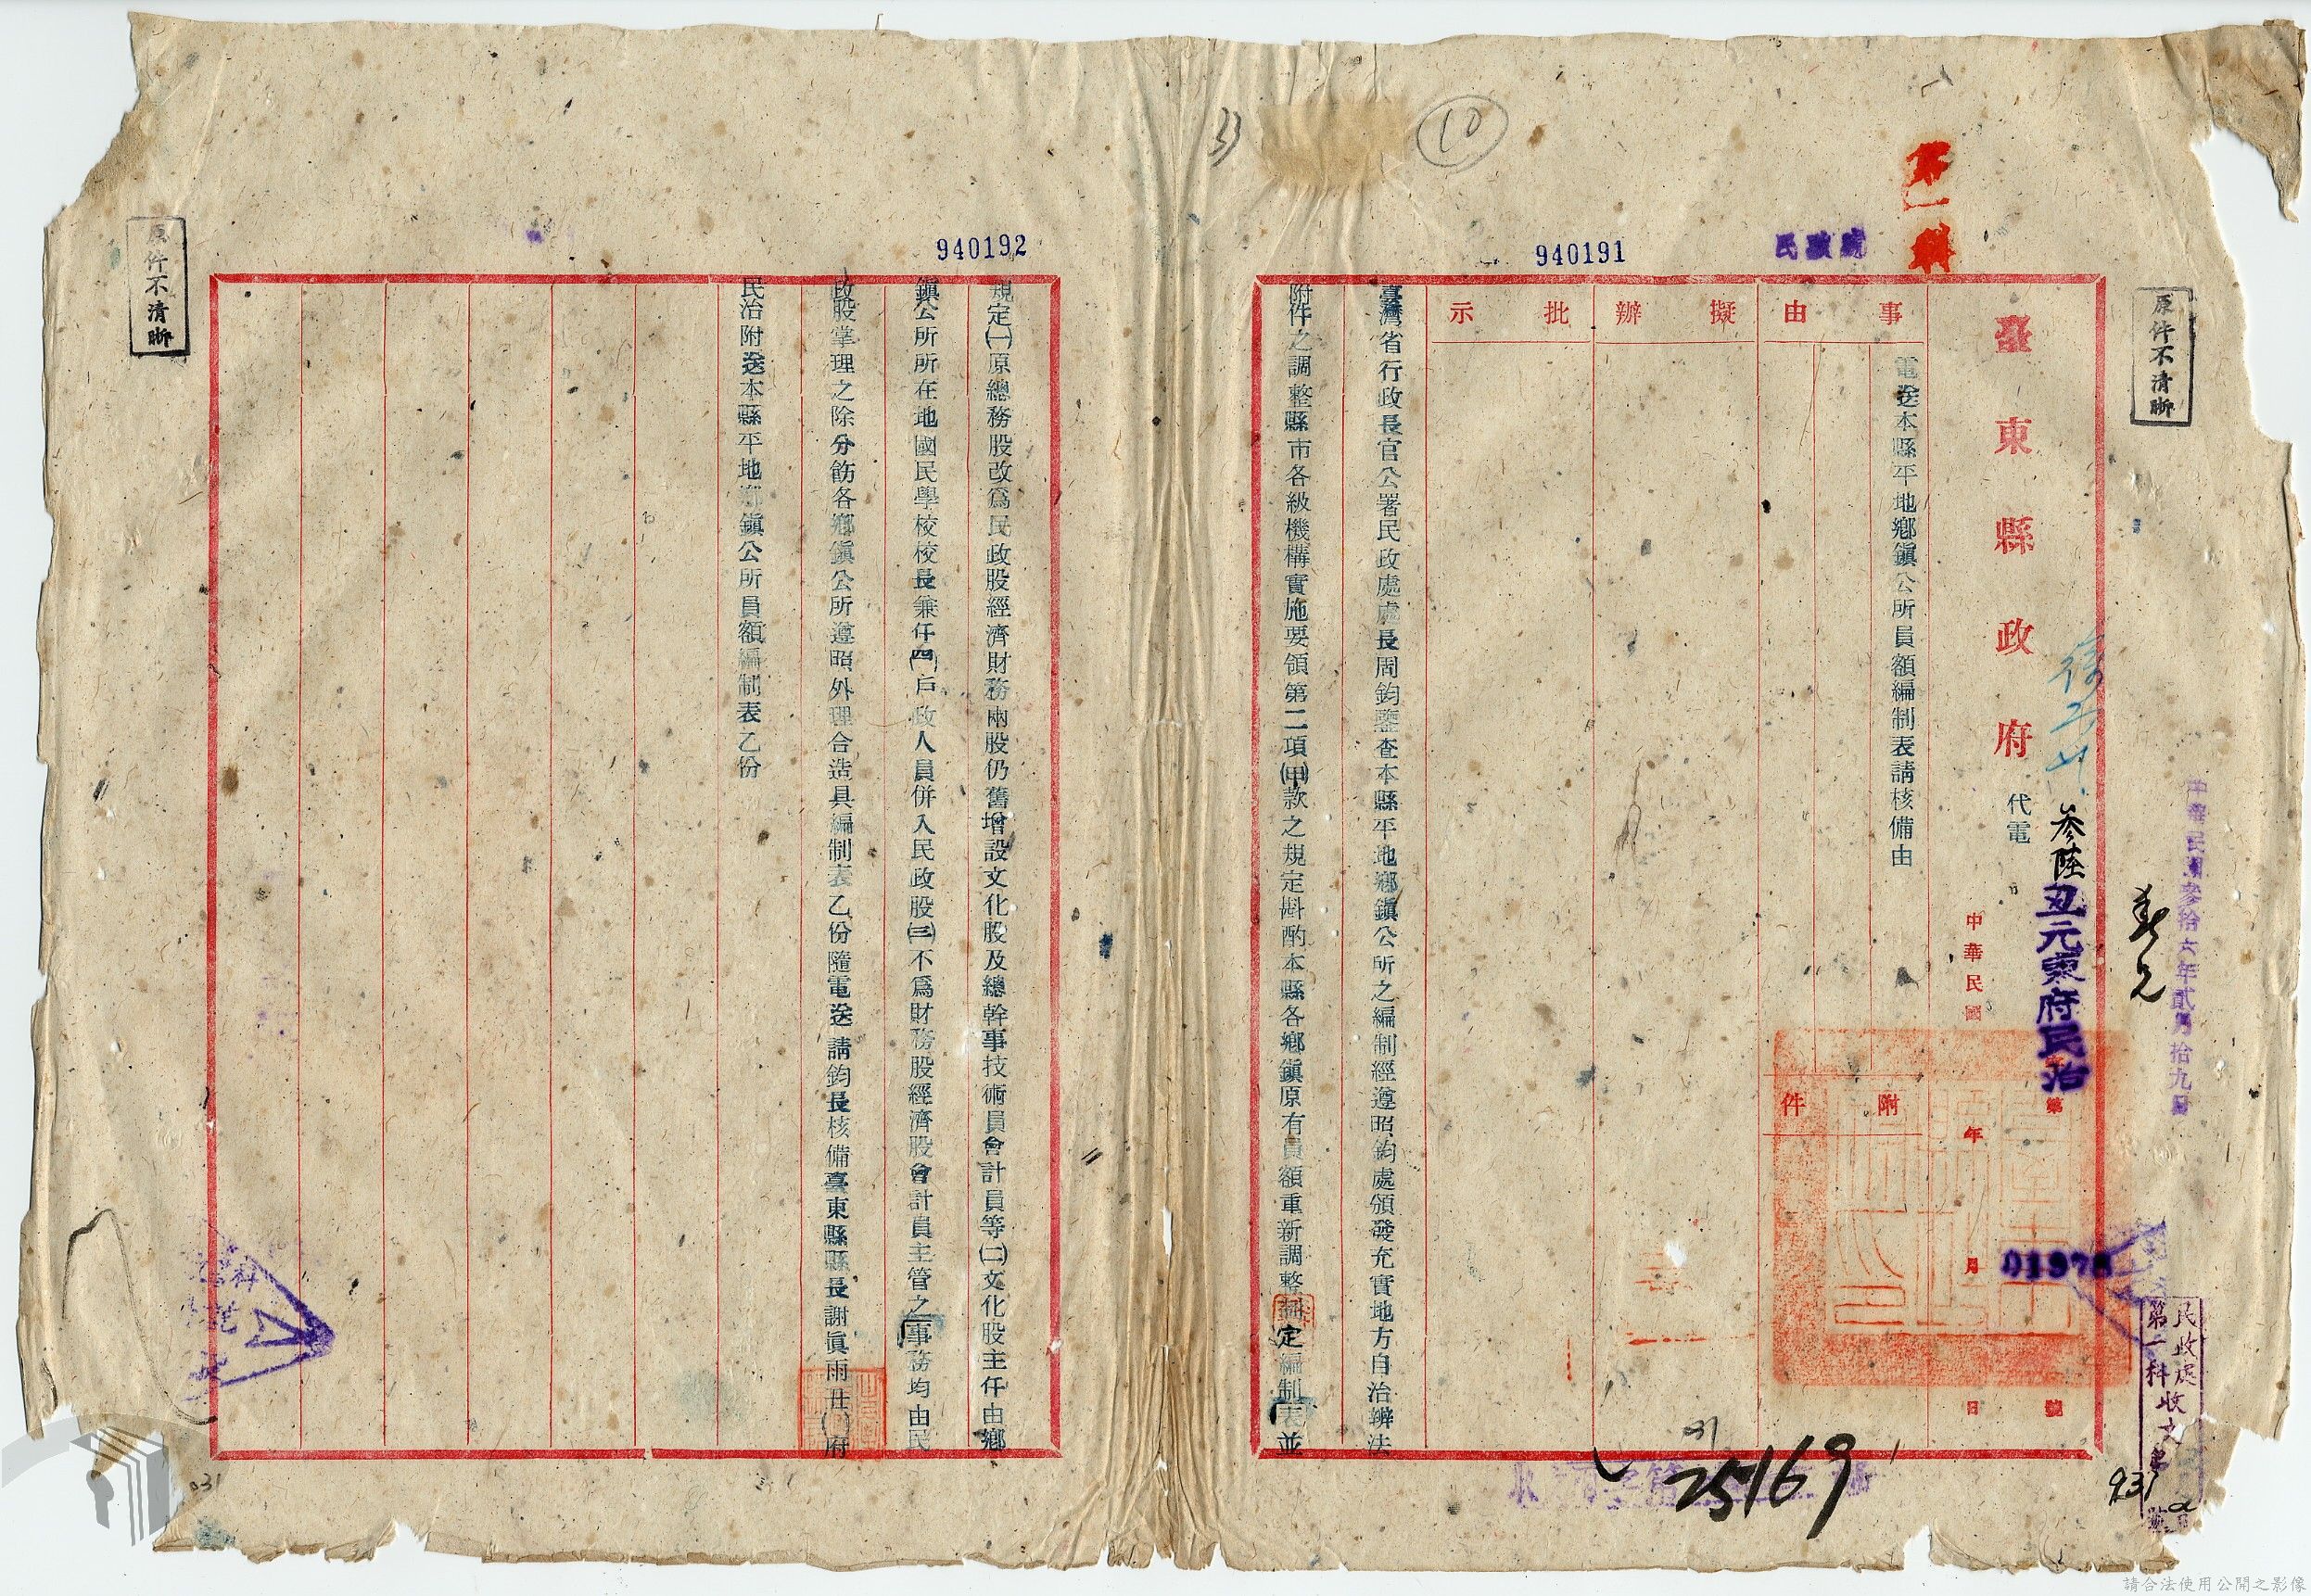 原件不清晰
民政處
第一科
中華民國參拾六年貳月拾九日
民政處第二科收文第
931
臺東縣政府
代電
參陸丑元東府民治
第
號
01978
中華民國
年
月
日
事由
電送本縣平地鄉鎮公所員額編制表請核備由
附件
擬辦
批示
940191
10
33
臺灣省行政長官公署民政處處長周鈞鑒查本縣平地鄉鎮公所之編制經遵照鈞處頒發充實地方自治辦法
附件之調整縣市各級機構實施要領第二項(甲)款之規定斟酌本縣各鄉鎮原有員額重新調整制定編制表並
31
25169
940192
規定(一)原總務股改爲民政股經濟財務兩股仍舊增設文化股及總幹事技術員會計員等(二)文化股主任由鄉
鎮公所所在地國民學校校長兼任(四)戶政人員併入民政股(三)不爲財務股經濟股會計員主管之事務均由民
政股掌理之除分飭各鄉鎮公所遵照外理合造具編制表乙份隨電送請鈞長核備臺東縣縣長謝眞雨丑( )府
民治附送本縣平地鄉鎮公所員額編制表乙份
原件不清晰
031
請合法使用公開之影像